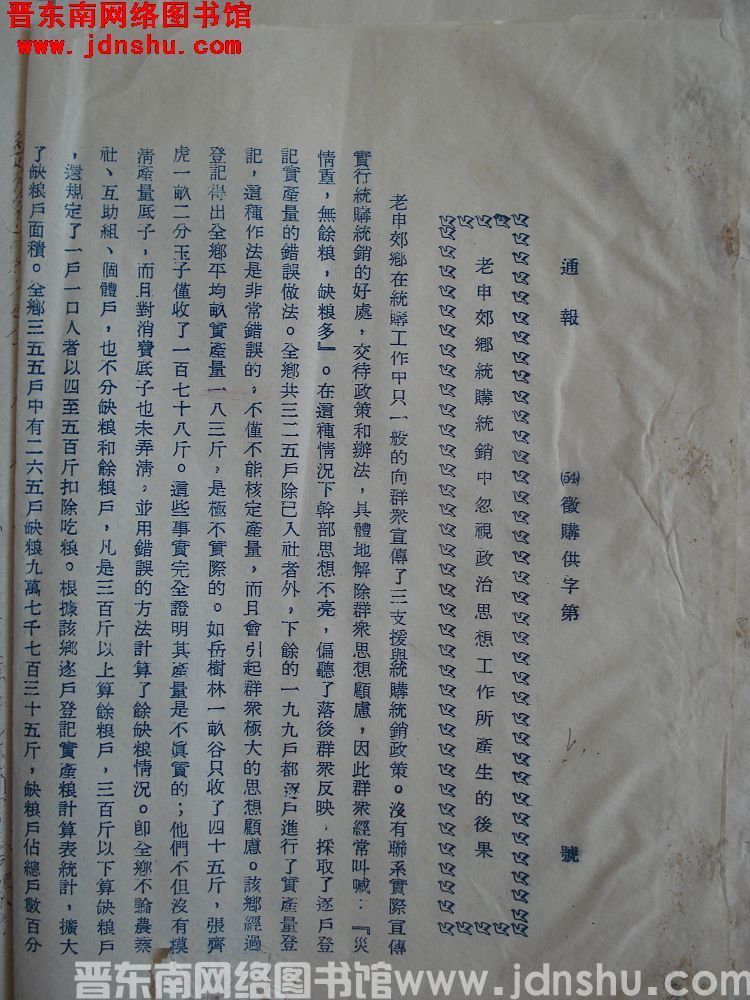 晋东南网络图书馆
www.jdnshu.com
通報　(54)徵購供字第　號
老申郊鄉統購統銷中忽視政治思想工作所產生的後果
老申郊鄉在統購工作中只一般的向群衆宣傳了三支援與統購統銷政策。沒有聯系實際宣傳
實行統購統銷的好處，交待政策和辦法，具體地解除群衆思想顧慮，因此群衆經常叫喊：『災
情重，無餘粮，缺粮多』。在這種情況下幹部思想不亮，偏聽了落後群衆反映，採取了逐戶登
記實產量的錯誤做法。全鄉共三二五戶除已入社者外，下餘的一九九戶都逐戶進行了實產量登
記，這種作法是非常錯誤的，不僅不能核定產量，而且會引起群衆極大的思想顧慮。該鄉經過
登記得出全鄉平均畝實產量一八三斤，是極不實際的。如岳樹林一畝谷只收了四十五斤，張齊
虎一畝二分玉子僅收了一百七十八斤。這些事實完全證明其產量是不眞實的；他們不但沒有摸
清產量底子，而且對消費底子也未弄清，並用錯誤的方法計算了餘缺粮情況。卽全鄉不論農業
社、互助組、個體戶，也不分缺粮和餘粮戶，凡是三百斤以上算餘粮戶，三百斤以下算缺粮戶
，還規定了一戶一口人者以四至五百斤扣除吃粮。根據該鄉逐戶登記實產粮計算表統計，擴大
了缺粮戶面積。全鄉三五五戶中有二六五戶缺粮九萬七千七百三十五斤，缺粮戶佔總戶數百分
晋东南网络图书馆www.jdnshu.com